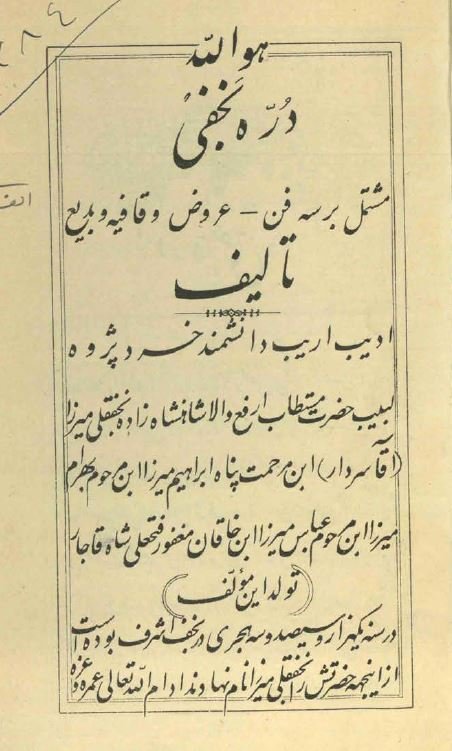 هو الله
دُرّه نجفی
مشتمل بر سه فن – عروض و قافیه و بدیع
تألیف
ادیب اریب دانشمند خرد پژوه
لبیب حضرت مستطاب ارفع والا شاهنشاه زاده نجفقلی میرزا
(آقا سردار) ابن مرحمت پناه ابراهیم میرزا ابن مرحوم بهرام
میرزا ابن مرحوم عباس میرزا ابن خاقان مغفور فتحعلی شاه قاجار
(تولد این مؤلف)
در سنه یکهزار و سیصد و سه هجری در نجف اشرف بوده است
از اینجهه حضرتش را نجفقلی میرزا نام نهادند ادام الله تعالی عمره و عزه